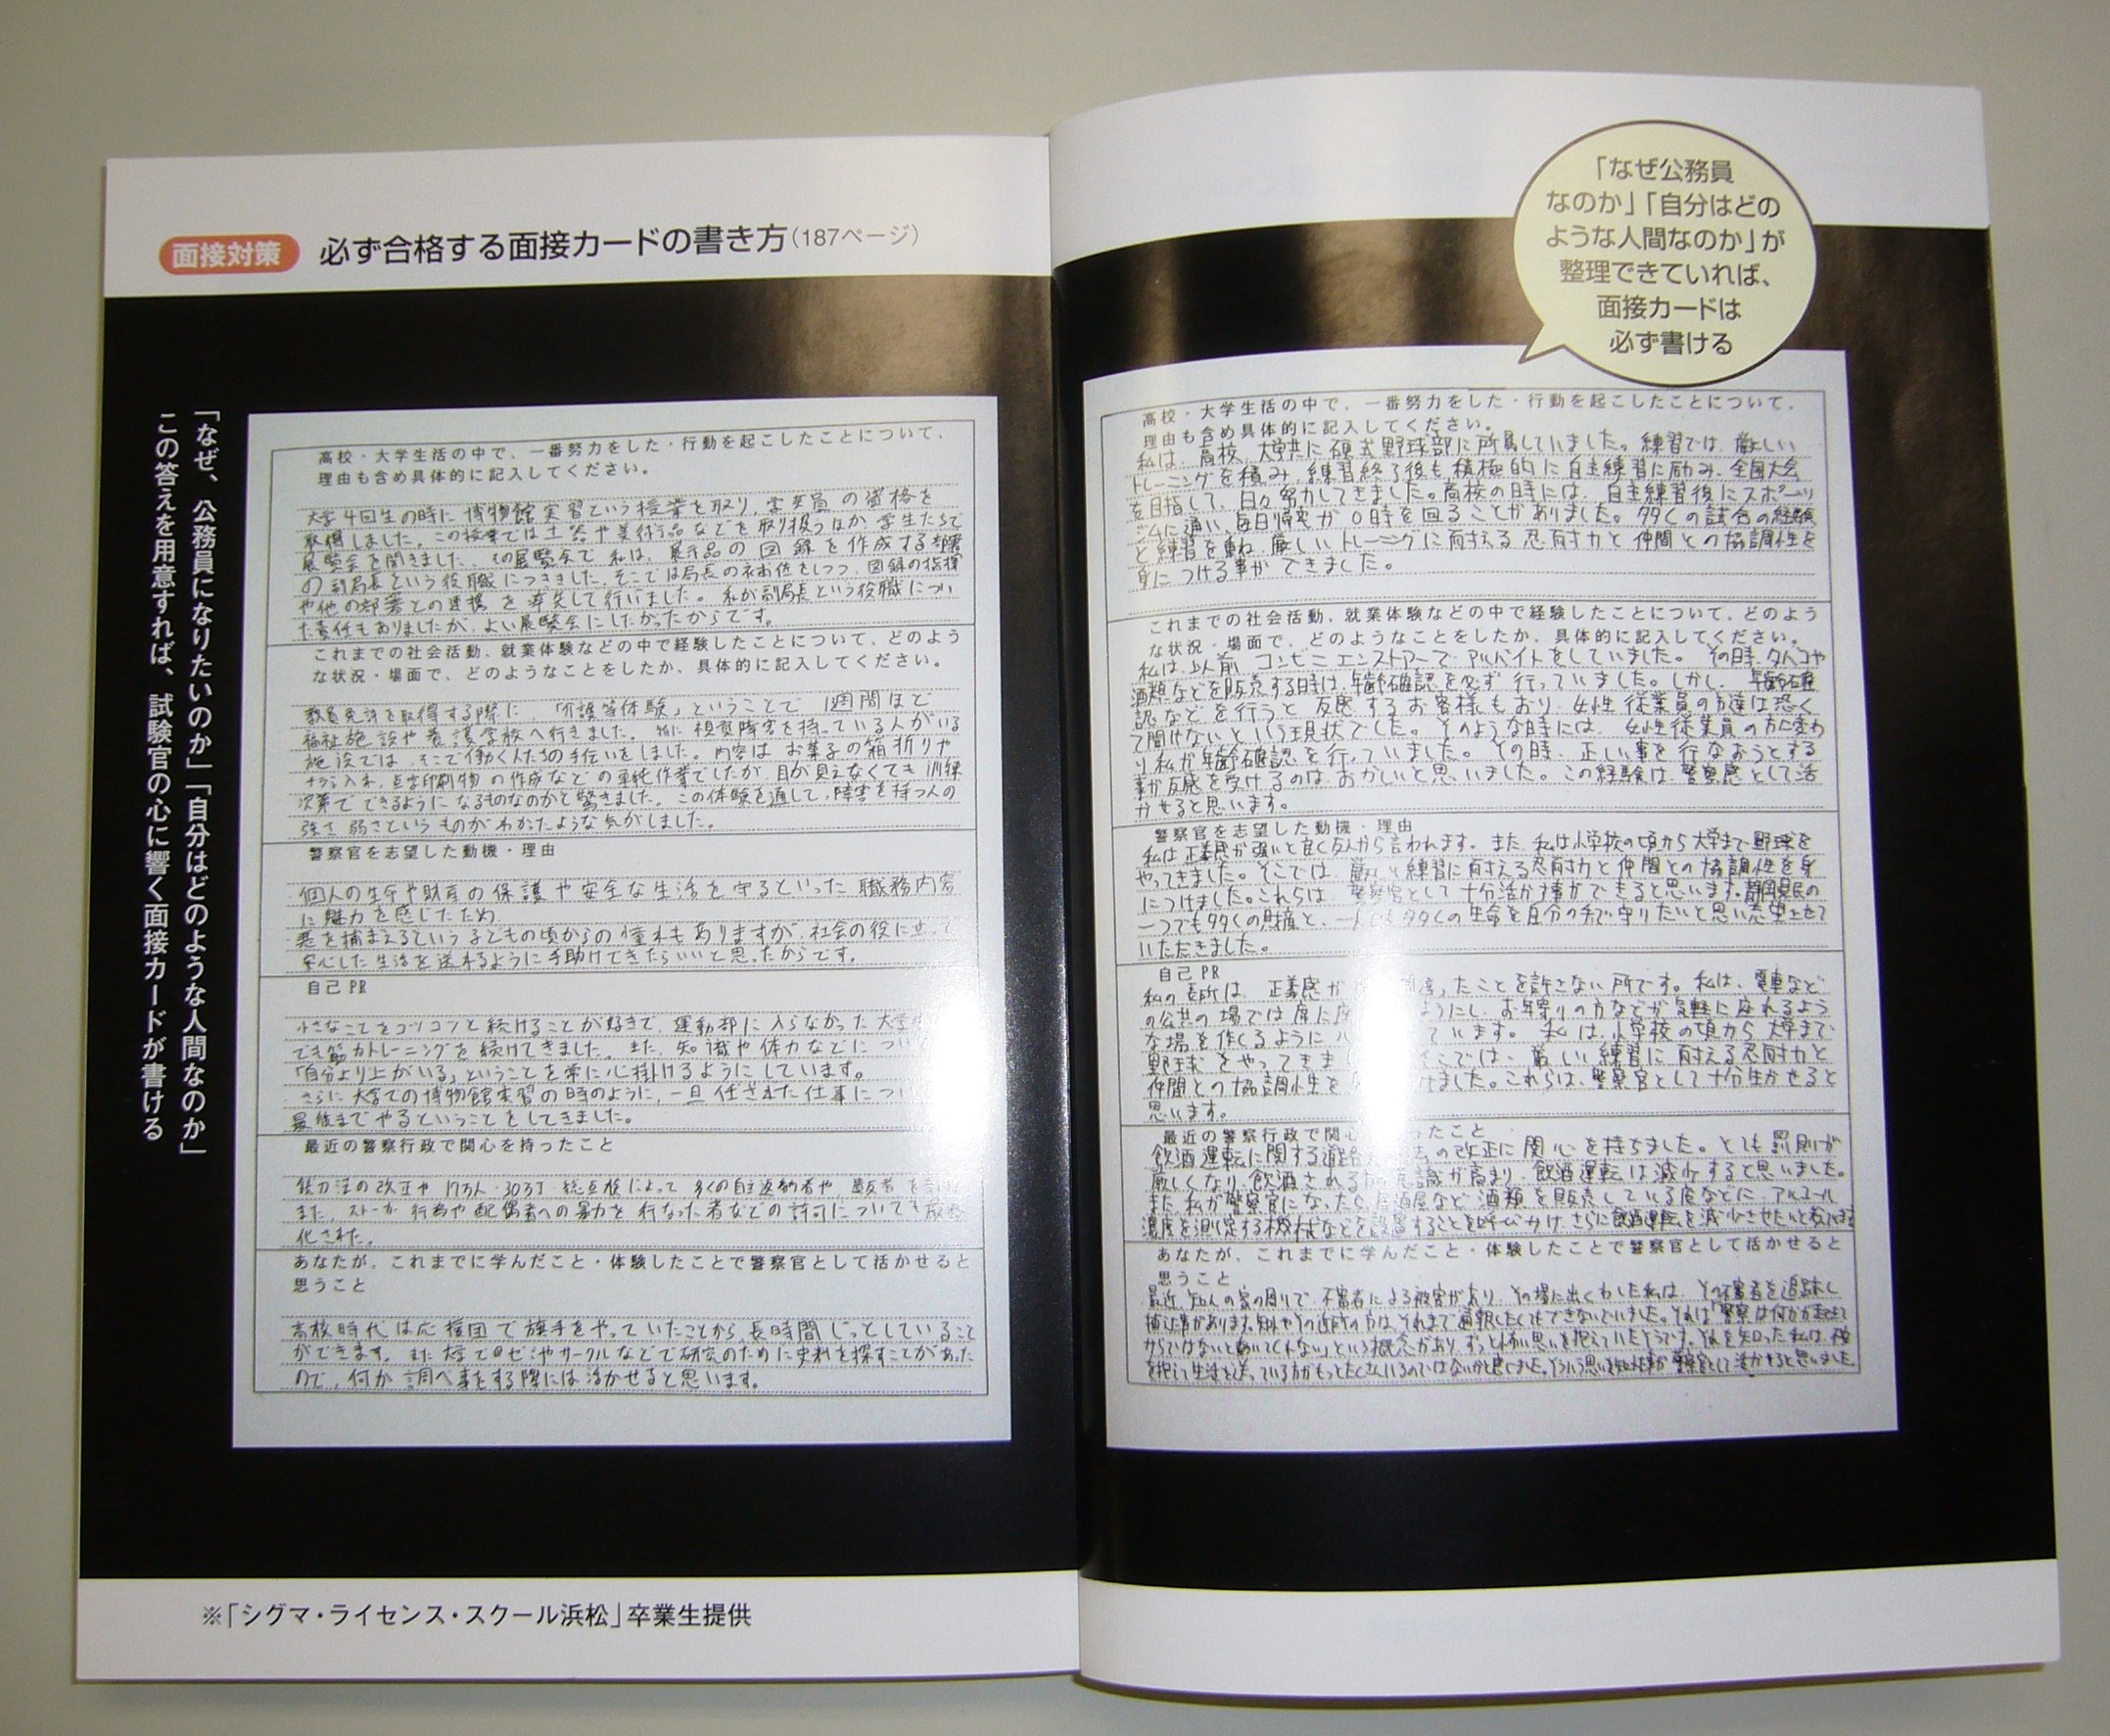 面接対策 必ず合格する面接カードの書き方（187ページ）
「なぜ、公務員になりたいのか」「自分はどのような人間なのか」
この答えを用意すれば、試験官の心に響く面接カードが書ける
高校・大学生活の中で、一番努力をした・行動を起こしたことについて、
理由も含め具体的に記入してください。
大学4回生の時に博物館実習という授業を取り、学芸員の資格を
取得しました。この授業では土器や美術品などを取り扱うほか、学生たちで
展覧会を開きました。その展覧会で私は、展示品の図録を作成する部署
の副局長という役職につきました。そこでは局長の補佐をしつつ、図録の指揮
や他の部署との連携を率先して行いました。私が副局長という役職につい
た責任もありましたが、よい展覧会にしたかったからです。
これまでの社会活動、就業体験などの中で経験したことについて、どのよう
な状況・場面で、どのようなことをしたか、具体的に記入してください。
教員免許を取得する際に、「介護等体験」ということで1週間ほど
福祉施設や養護学校へ行きました。特に視覚障害を持っている人がいる
施設では、そこで働く人たちの手伝いをしました。内容はお菓子の箱折りや
チラシ入れ、点字印刷物の作成などの単純作業でしたが、目が見えなくても訓練
次第でできるようになるものなのかと驚きました。この体験を通して、障害を持つ人の
強さ、弱さというものがわかったような気がしました。
警察官を志望した動機・理由
個人の生命や財産の保護や安全な生活を守るといった職務内容
に魅力を感じたため
悪を捕まえるという子どもの頃からの憧れもありますが、社会の役に立って
安心した生活を送れるように手助けできたらいいと思ったからです。
自己PR
小さなことをコツコツと続けることが好きで、運動部に入らなかった大学
でも筋力トレーニングを続けてきました。また、知識や体力などについ
「自分より上がいる」ということを常に心掛けるようにしています。
さらに大学での博物館実習の時のように、一旦任された仕事につい
最後までやるということをしてきました。
最近の警察行政で関心を持ったこと
銃刀法の改正や17万人・30万丁総点検によって多くの自主返納者や、違反者を
また、ストーカー行為や配偶者への暴力を行なった者などの許可についても厳格
化された。
あなたが、これまでに学んだこと・体験したことで警察官として活かせると
思うこと
高校時代は応援団で旗手をやっていたことから、長時間じっとしていること
ができます。また大学でのゼミやサークルなどで研究のために史料を探すことがあった
ので、何か調べ事をする際には活かせると思います。
※「シグマ・ライセンス・スクール浜松」卒業生提供
「なぜ公務員
なのか」「自分はどの
ような人間なのか」が
整理できていれば、
面接カードは
必ず書ける
高校・大学生活の中で、一番努力をした・行動を起こしたことについて、
理由も含め具体的に記入してください。
私は、高校、大学共に硬式野球部に所属していました。練習では、厳しい
トレーニングを積み、練習終了後も積極的に自主練習に励み、全国大会
を目指して、日々努力してきました。高校の時には、自主練習後にスポーツ
ジムに通い、毎日帰宅が0時を回ることがありました。多くの試合の経験
と練習を重ね、厳しいトレーニングに耐える忍耐力と仲間との協調性を
身につける事ができました。
これまでの社会活動、就業体験などの中で経験したことについて、どのよう
な状況・場面で、どのようなことをしたか、具体的に記入してください。
私は、以前、コンビニエンスストアーでアルバイトをしていました。その時、タバコや
酒類などを販売する時は、年齢確認を必ず行っていました。しかし、年齢確
認などを行うと反感するお客様もおり、女性従業員の方達は恐く
て聞けないという現状でした。そのような時には、女性従業員の方に変わ
り私が年齢確認を行っていました。その時、正しい事を行なおうとする
事が反感を受けるのは、おかしいと思いました。この経験は、警察官として活
かせると思います。
警察官を志望した動機・理由
私は正義感が強いと良く友人から言われます。また、私は小学校の頃から大学まで野球を
やってきました。そこでは、厳しい練習に耐える忍耐力と仲間との協調性を身
につけました。これらは、警察官として十分活かす事ができると思います。静岡県民の
一つでも多くの財産と、一人でも多くの生命を自分の手で守りたいと思い志望させて
いただきました。
自己PR
私の長所は、正義感が ったことを許さない所です。私は、電車など
の公共の場では席に座 ようにし、お年寄りの方などが気軽に座れるよう
な場を作るように ています。私は、小学校の頃から大学まで
野球をやってきま そこでは、厳しい練習に耐える忍耐力と
仲間との協調性を ました。これらは、警察官として十分生かせると
思います。
最近の警察行政で関心 ったこと
飲酒運転に関する道路 の改正に関心を持ちました。とても罰則が
厳しくなり、飲酒される 意識が高まり、飲酒運転は減少すると思いました。
また、私が警察官になったら、居酒屋など酒類を販売している店などに、アルコール
濃度を測定する機械などを設置することを呼びかけ、さらに飲酒運転を減少させたいと
あなたが、これまでに学んだこと・体験したことで警察官として活かせると
思うこと
最近、知人の家の周りで、不審者による被害があり、その場に出くわした私は、その不審者を追跡し
捕 事があります。 それまで通報したくてもできないでいました。それは「警察は何かが起きて
からではないと動いてくれない」という概念があり、ずっと怖い思いを抱えていたそうです。それを知った私は、
生活を送っている方がもっとたくさんいるのではないかと感じました。 警察官として活かせると思いました。